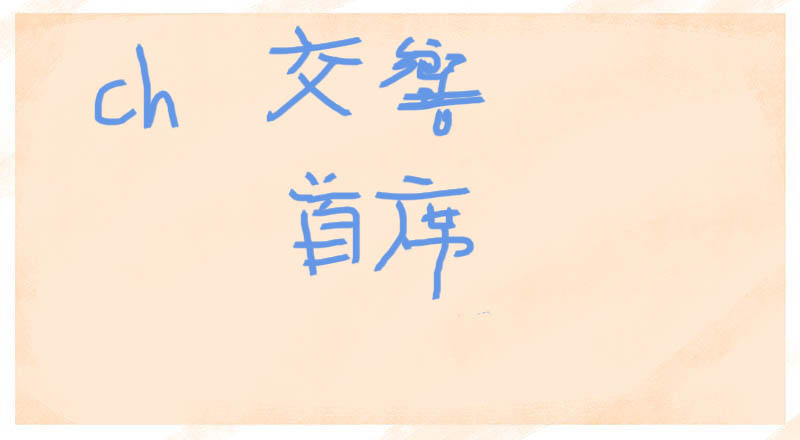 ch 交響
首席